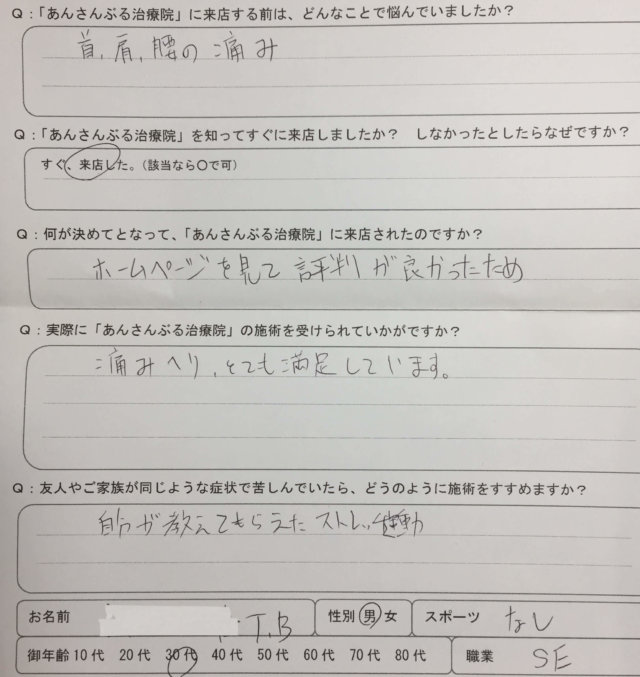 Q：「あんさんぶる治療院」に来店する前は、どんなことで悩んでいましたか？
首, 肩, 腰の痛み
Q：「あんさんぶる治療院」を知ってすぐに来店しましたか？　しなかったとしたらなぜですか？
すぐ、来店した。（該当なら〇で可）
Q：何が決めてとなって、「あんさんぶる治療院」に来店されたのですか？
ホームページを見て評判が良かったため
Q：実際に「あんさんぶる治療院」の施術を受けられていかがですか？
痛みへり, とても満足しています。
Q：友人やご家族が同じような症状で苦しんでいたら、どうのように施術をすすめますか？
自分が教えてもらえたストレッチ運動
お名前 T.B 性別 男 女 スポーツ なし
御年齢 10代 20代 30代 40代 50代 60代 70代 80代 職業 SE